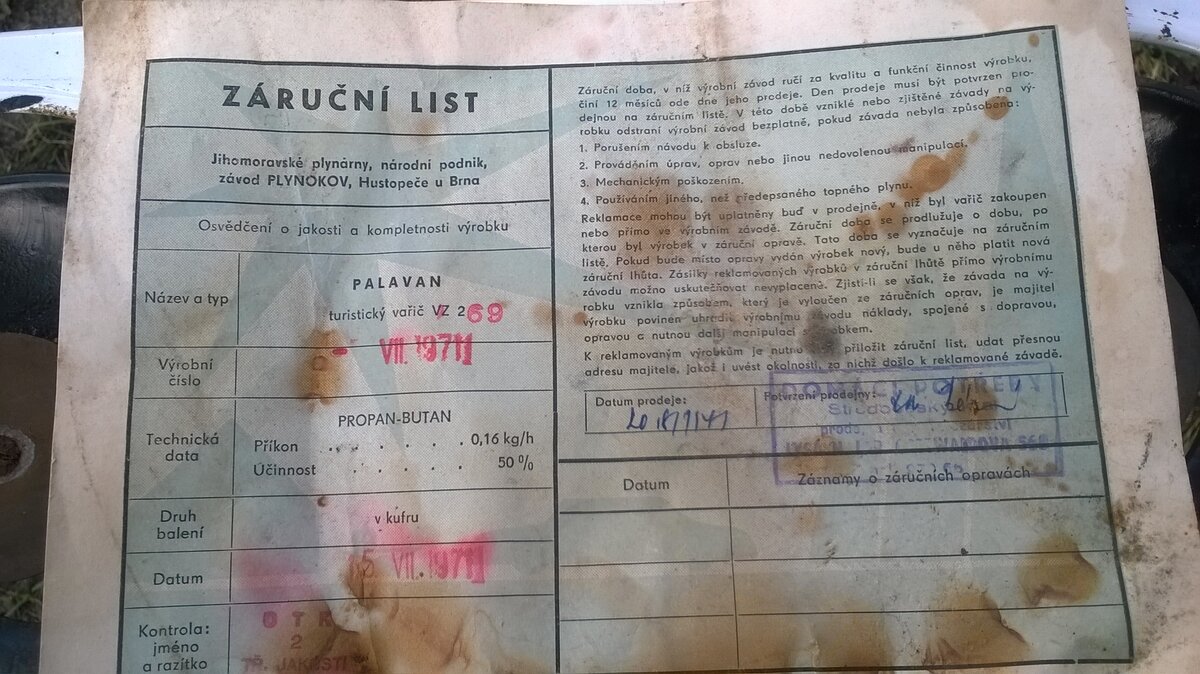 ZÁRUČNÍ LIST
Jihomoravské plynárny, národní podnik,
závod PLYNOKOV, Hustopeče u Brna
Osvědčení o jakosti a kompletnosti výrobku
Název a typ
PALAVAN
turistický vařič VZ 269
Výrobní
číslo
VII. 1971
Technická
data
PROPAN-BUTAN
Příkon . . . . . . 0,16 kg/h
Účinnost . . . . . 50 %
Druh
balení
v kufru
Datum
5. VII. 1971
Kontrola:
jméno
a razítko
OTK
2
TŘ. JAKOSTI
Záruční doba, v níž výrobní závod ručí za kvalitu a funkční činnost výrobku,
činí 12 měsíců ode dne jeho prodeje. Den prodeje musí být potvrzen pro-
dejnou na záručním listě. V této době vzniklé nebo zjištěné závady na vý-
robku odstraní výrobní závod bezplatně, pokud závada nebyla způsobena:
1. Porušením návodu k obsluze.
2. Prováděním úprav, oprav nebo jinou nedovolenou manipulací.
3. Mechanickým poškozením.
4. Používáním jiného, než předepsaného topného plynu.
Reklamace mohou být uplatněny buď v prodejně, v níž byl vařič zakoupen
nebo přímo ve výrobním závodě. Záruční doba se prodlužuje o dobu, po
kterou byl výrobek v záruční opravě. Tato doba se vyznačuje na záručním
listě. Pokud bude místo opravy vydán výrobek nový, bude u něho platit nová
záruční lhůta. Zásilky reklamovaných výrobků v záruční lhůtě přímo výrobnímu
závodu možno uskutečňovat nevyplaceně. Zjistí-li se však, že závada na vý-
robku vznikla způsobem, který je vyloučen ze záručních oprav, je majitel
výrobku povinen uhradit výrobnímu závodu náklady, spojené s dopravou,
opravou a nutnou další manipulací s výrobkem.
K reklamovaným výrobkům je nutno přiložit záruční list, udat přesnou
adresu majitele, jakož i uvést okolnosti, za nichž došlo k reklamované závadě.
Datum prodeje:
Potvrzení prodejny:
DOMÁCÍ POTŘEBY
Datum
Záznamy o záručních opravách